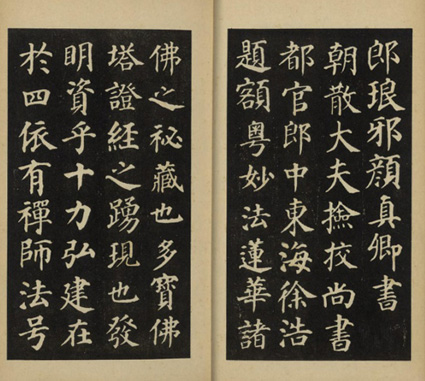 郎琅邪顏真卿書
朝散大夫撿挍尚書
都官郎中東海徐浩
題額粵妙法蓮華諸
佛之祕藏也多寶佛
塔證經之踴現也發
明資乎十力弘建在
於四依有禪師法号